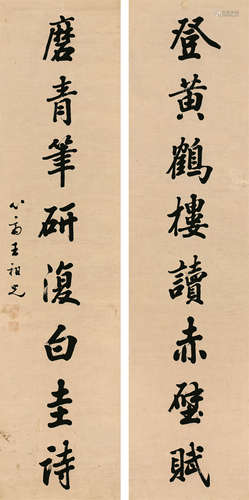 登黄鶴樓讀赤壁賦
磨青筆研復白圭詩
王祖光